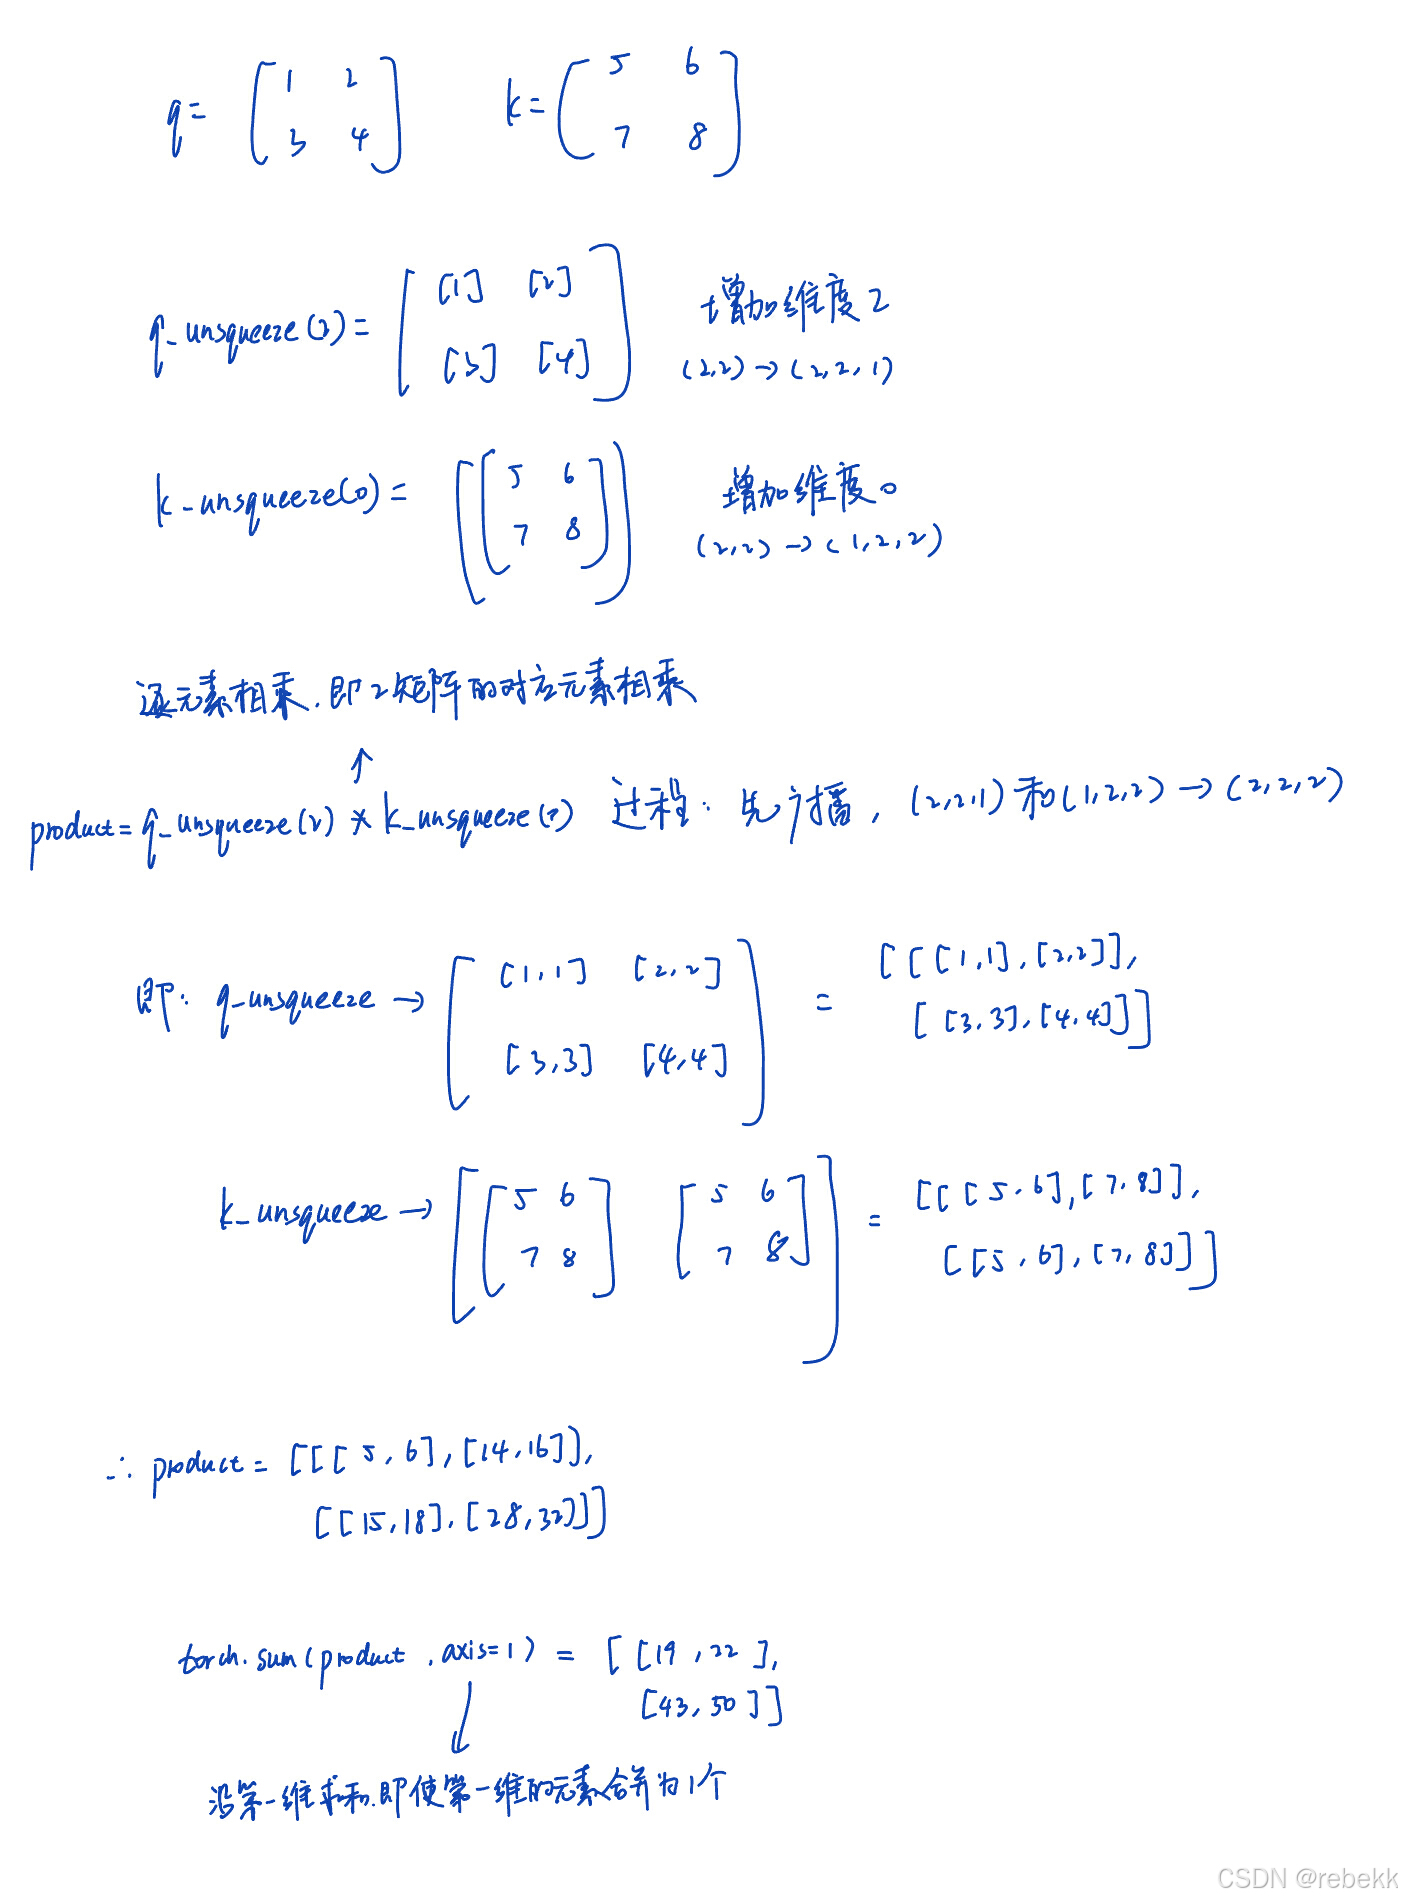 q= [1 2
3 4]
k= [5 6
7 8]
q_unsqueeze(2)= [[1] [2]
[3] [4]]
增加维度2
(2,2)→(2,2,1)
k_unsqueeze(0)= [[5 6
7 8]]
增加维度0
(2,2)→(1,2,2)
逐元素相乘.即2矩阵的对应元素相乘
↑
product=q_unsqueeze(2) * k_unsqueeze(0) 过程: 先广播, (2,2,1)和(1,2,2)→(2,2,2)
即: q_unsqueeze → [[1,1] [2,2]
[3,3] [4,4]]
= [[[1,1],[2,2]],
[[3,3],[4,4]]]
k_unsqueeze → [[5 6 [5 6
7 8] 7 8]]
= [[[5,6],[7,8]],
[[5,6],[7,8]]]
∴ product= [[[5,6],[14,16]],
[[15,18],[28,32]]]
torch.sum(product,axis=1) = [[19,22],
[43,50]]
沿第一维求和.即使第一维的元素合并为1个
CSDN @rebekk